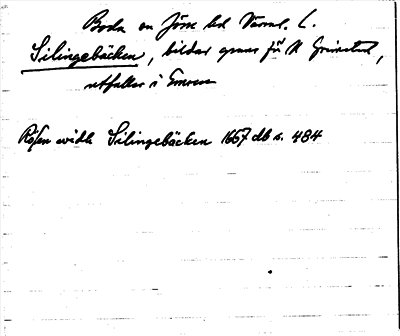 Boda sn Jösse hd Värml. L.
Silingebäcken, bildar gräns för N Grinstad,
utfaller i Emsen
Råsen widh Silingebäcken 1667 db s. 484